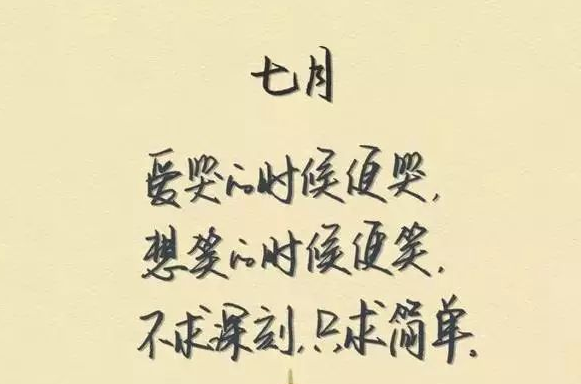 七月
爱哭的时候便哭,
想笑的时候便笑,
不求深刻,只求简单。